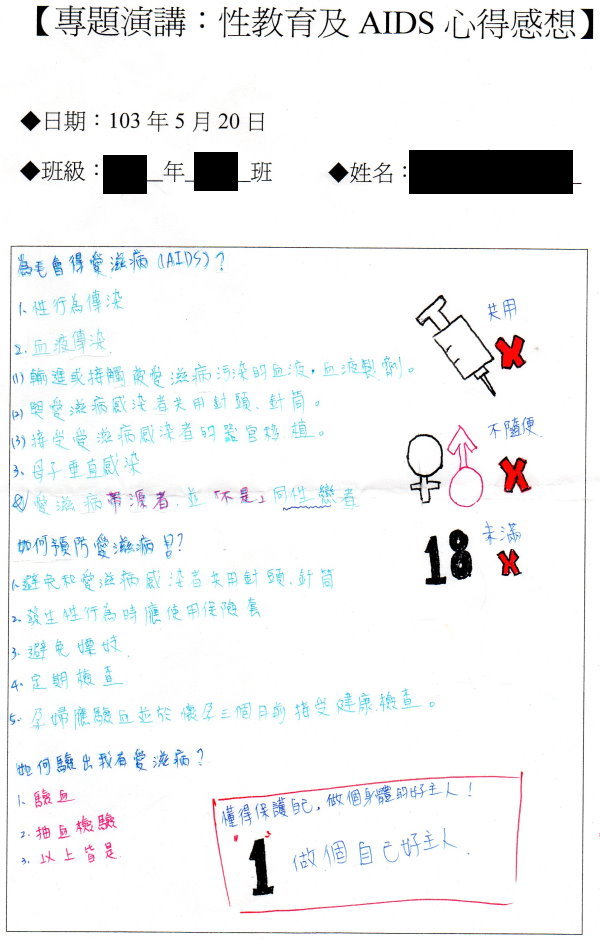 【專題演講：性教育及 AIDS 心得感想】
◆日期：103 年 5 月 20 日
◆班級：年班 ◆姓名：
為毛會得愛滋病(AIDS)?
1. 性行為傳染
2. 血液傳染
(1) 輸進或接觸被愛滋病污染的血液，血液製劑。
(2) 與愛滋病感染者共用針頭、針筒。
(3) 接受愛滋病感染者的器官移植。
3. 母子垂直感染
愛滋病帶源者，並「不是」同性戀者
共用
不隨便
18 未滿
如何預防愛滋病?
1. 避免和愛滋病感染者共用針頭、針筒
2. 發生性行為時應使用保險套
3. 避免嫖妓
4. 定期檢查
5. 孕婦應驗血並於懷孕三個月前接受健康檢查。
如何驗出我有愛滋病?
1. 驗血
2. 抽血檢驗
3. 以上皆是
懂得保護自己，做個身體的好主人！
1 做個自己好主人